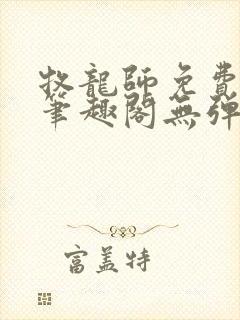 牧龍師免費
筆趣閣無彈
富盖特